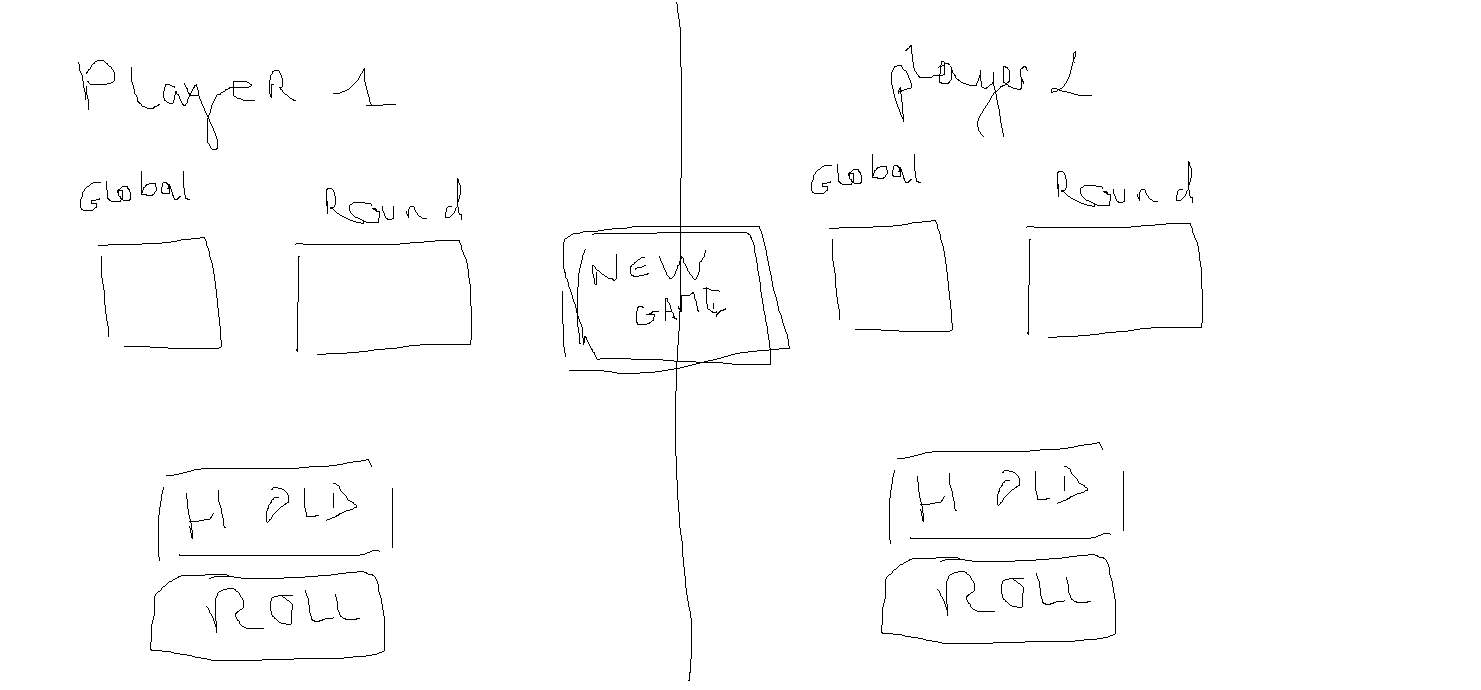 PlayeR 1
Global
Round
HOLD
ROLL
NEW
GAME
player 2
Global
Round
HOLD
ROLL